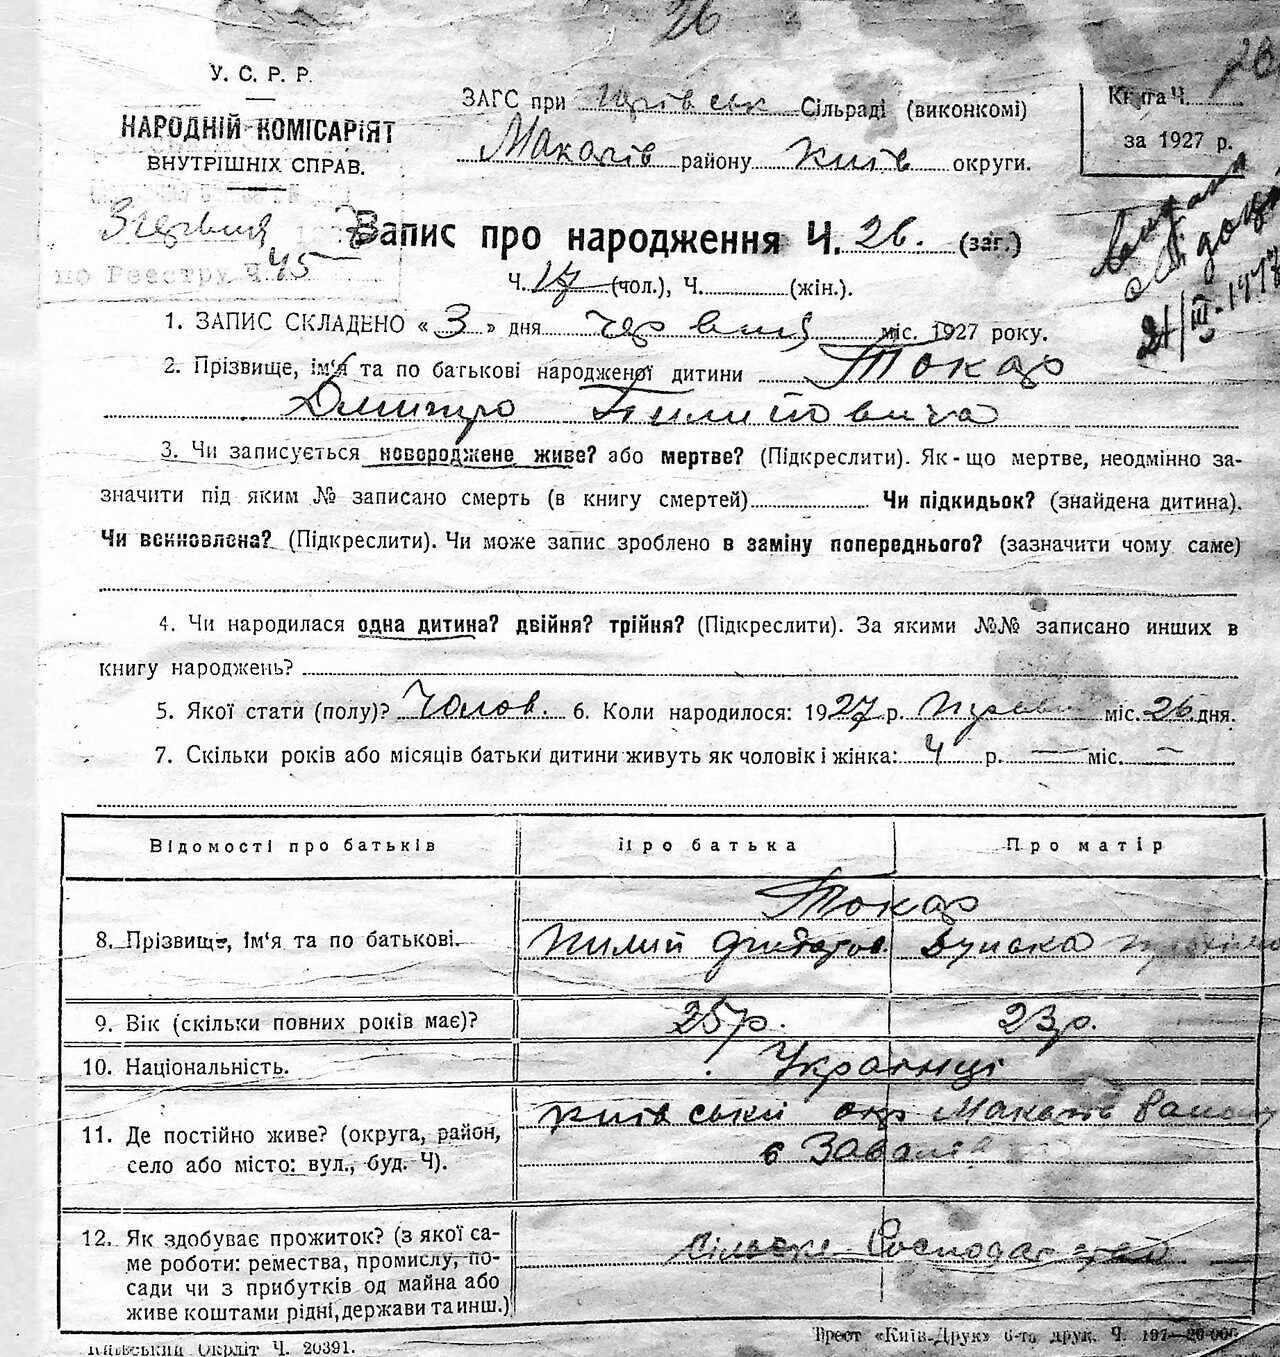 26
У. С. Р. Р.
НАРОДНІЙ КОМІСАРІЯТ
ВНУТРІШНІХ СПРАВ.
ЗАГС при Сільраді (виконкомі)
Макарів району Київ округи.
Книга Ч.
за 1927 р.
26
по Реестру Ч. 45
Запис про народження Ч. 26. (заг.)
Ч. 17 (чол.), Ч. (жін.).
21/III-1947
1. ЗАПИС СКЛАДЕНО « 3 » дня червня міс. 1927 року.
2. Прізвище, ім'я та по батькові народженої дитини Токар
Дмитро Пилипович
3. Чи записується новороджене живе? або мертве? (Підкреслити). Як-що мертве, неодмінно за-
значити під яким № записано смерть (в книгу смертей) Чи підкидьок? (знайдена дитина).
Чи всиновлена? (Підкреслити). Чи може запис зроблено в заміну попереднього? (зазначити чому саме)
4. Чи народилася одна дитина? двійня? трійня? (Підкреслити). За якими №№ записано инших в
книгу народжень?
5. Якої стати (полу)? Чолов. 6. Коли народилося: 1927 р. міс. 26 дня.
7. Скільки років або місяців батьки дитини живуть як чоловік і жінка: 4 р. — міс. —
Відомості про батьків Про батька Про матір
Токар
8. Прізвище, ім'я та по батькові.
9. Вік (скільки повних років має)? 25 р. 23 р.
10. Національність. Українці
Київський окр Макарів
11. Де постійно живе? (округа, район,
село або місто: вул., буд. Ч).
с Завалів
12. Як здобуває прожиток? (з якої са-
ме роботи: ремества, промислу, по-
сади чи з прибутків од майна або
живе коштами рідні, держави та инш.)
Сільське Господарство
Київський Окрліт Ч. 20391.
Трест «Київ-Друк» 6-та друк. Ч. 197—20 000